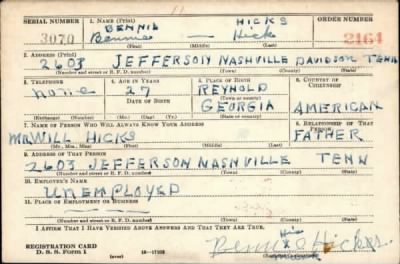 SERIAL NUMBER 1. NAME (Print) ORDER NUMBER
BENNIE HICKS
3070 Bennie — Hick 2164
(First) (Middle) (Last)
2. ADDRESS (Print)
2603 JEFFERSON NASHVILLE DAVIDSON TENN
(Number and street or R. F. D. number) (Town) (County) (State)
3. TELEPHONE 4. AGE IN YEARS 5. PLACE OF BIRTH 6. COUNTRY OF CITIZENSHIP
none 27 REYNOLD
DATE OF BIRTH (Town or county)
GEORGIA AMERICAN
(Exchange) (Number) (Mo.) (Day) (Yr.) (State or country)
7. NAME OF PERSON WHO WILL ALWAYS KNOW YOUR ADDRESS 8. RELATIONSHIP OF THAT PERSON
MR WILL HICKS FATHER
(Mr., Mrs., Miss) (First) (Middle) (Last)
9. ADDRESS OF THAT PERSON
2603 JEFFERSON NASHVILLE TENN
(Number and street or R. F. D. number) (Town) (County) (State)
10. EMPLOYER'S NAME
UNEMPLOYED
11. PLACE OF EMPLOYMENT OR BUSINESS
(Number and street or R. F. D. number) (Town) (County) (State)
I AFFIRM THAT I HAVE VERIFIED ABOVE ANSWERS AND THAT THEY ARE TRUE.
REGISTRATION CARD
D. S. S. Form 1 (over) 16—17105
His
Bennie X Hicks